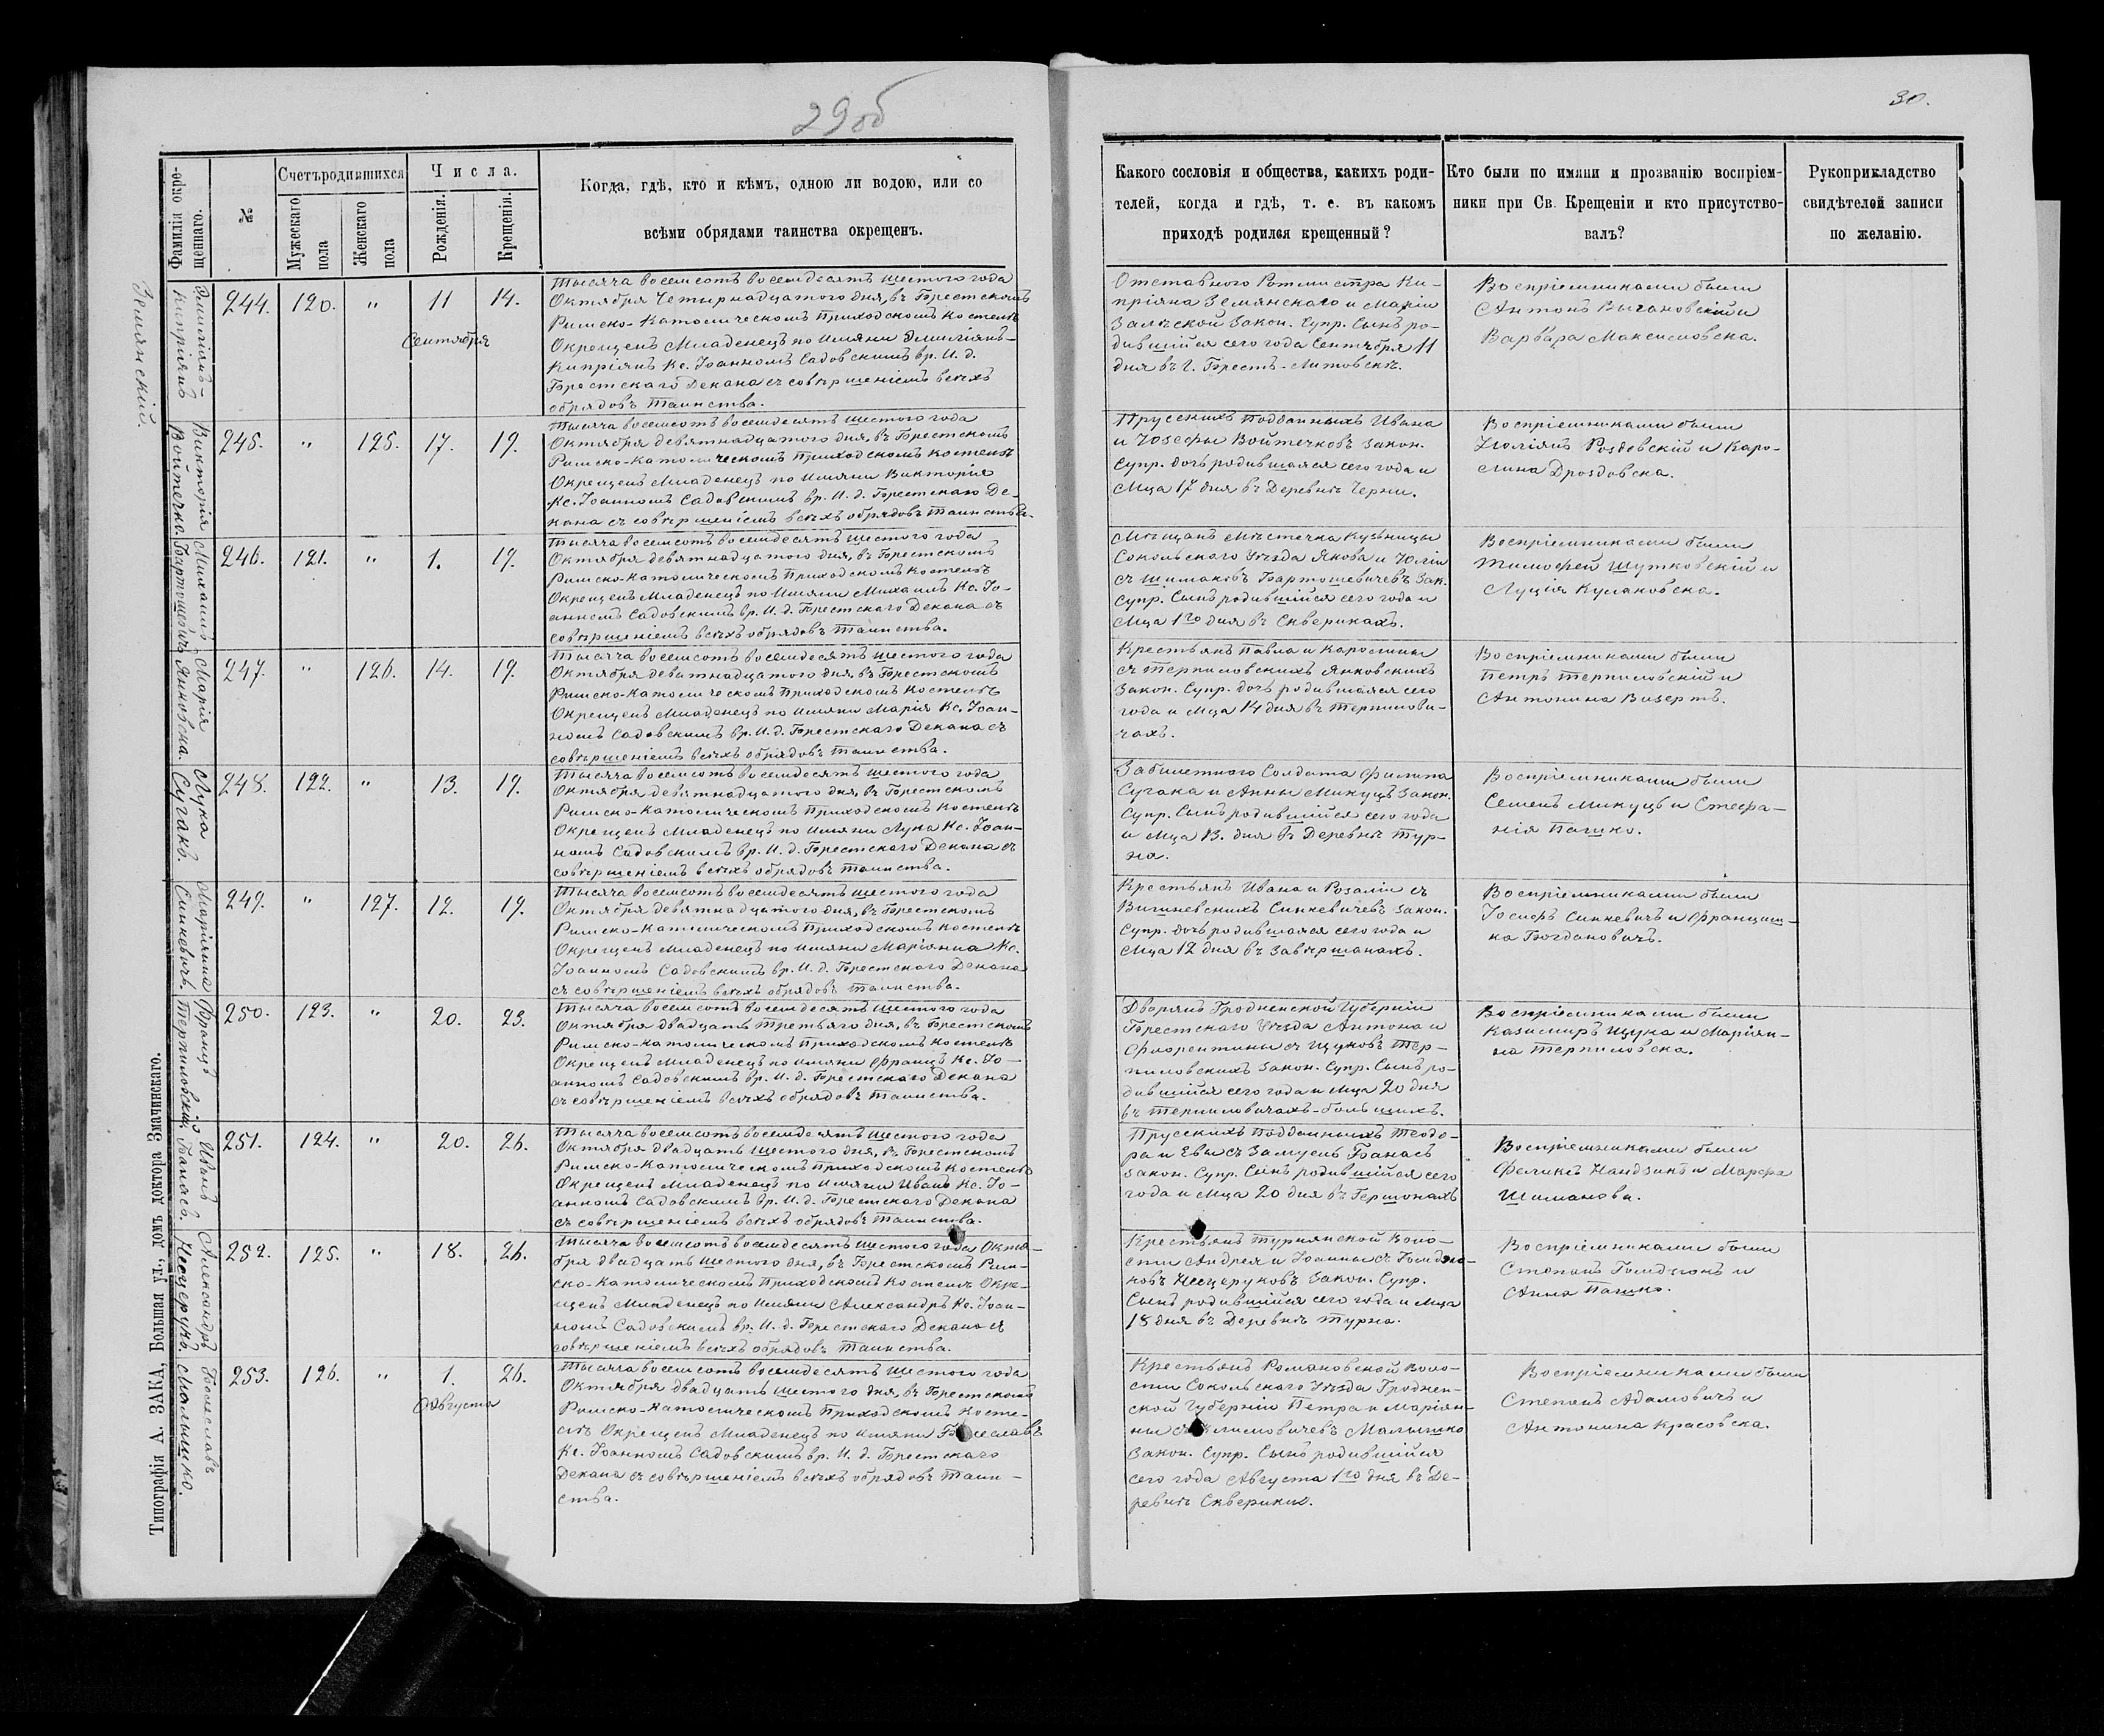 29об
Фамилія окре-
щеннаго.
№
Счетъ родившихся
Мужескаго
пола
Женскаго
пола
Числа.
Рожденія.
Крещенія.
Когда, гдѣ, кто и кѣмъ, одною ли водою, или со
всѣми обрядами таинства окрещенъ.
Эмилiянъ-
Кипріянъ
Землянскій.
244.
120.
"
11
Сентября
14.
Тысяча восемсотъ восемдесятъ шестого года
Октября Четырнадцатого дня, въ Брестскомъ
Римско-Католическомъ Приходскомъ Костелѣ
Окрещенъ Младенецъ по Имяни Эмилiянъ-
Кипріянъ Кс. Іоанномъ Садовскимъ вр. И. д.
Брестскаго Декана съ совѣршеніемъ всѣхъ
обрядовъ Таинства.
Викторія
Войтечко.
245.
"
125.
17.
19.
Тысяча восемсотъ восемдесятъ шестого года
Октября девятнадцатого дня, въ Брестскомъ
Римско-Католическомъ Приходскомъ Костелѣ
Окрещенъ Младенецъ по Имяни Викторія
Кс. Іоанномъ Садовскимъ вр. И. д. Брестскаго Де-
кана съ совѣршеніемъ всѣхъ обрядовъ Таинства.
Михаилъ
Бартошевичъ
246.
121.
"
1.
19.
Тысяча восемсотъ восемдесятъ шестого года
Октября девятнадцатого дня, въ Брестскомъ
Римско-Католическомъ Приходскомъ Костелѣ
Окрещенъ Младенецъ по Имяни Михаилъ Кс. Іо-
анномъ Садовскимъ вр. И. д. Брестскаго Декана съ
совѣршеніемъ всѣхъ обрядовъ Таинства.
Марія
Янковска.
247.
"
126.
14.
19.
Тысяча восемсотъ восемдесятъ шестого года
Октября девятнадцатого дня, въ Брестскомъ
Римско-Католическомъ Приходскомъ Костелѣ
Окрещенъ Младенецъ по Имяни Марія Кс. Іоан-
номъ Садовскимъ вр. И. д. Брестскаго Декана съ
совѣршеніемъ всѣхъ обрядовъ Таинства.
Лука
Сугакъ.
248.
122.
"
13.
19.
Тысяча восемсотъ восемдесятъ шестого года
Октября девятнадцатого дня, въ Брестскомъ
Римско-Католическомъ Приходскомъ Костелѣ
Окрещенъ Младенецъ по Имяни Лука Кс. Іоан-
номъ Садовскимъ вр. И. д. Брестскаго Декана съ
совѣршеніемъ всѣхъ обрядовъ Таинства.
Маріянна
Синкевичъ.
249.
"
127.
12.
19.
Тысяча восемсотъ восемдесятъ шестого года
Октября девятнадцатого дня, въ Брестскомъ
Римско-Католическомъ Приходскомъ Костелѣ
Окрещенъ Младенецъ по Имяни Маріянна Кс.
Іоанномъ Садовскимъ вр. И. д. Брестскаго Декана
съ совѣршеніемъ всѣхъ обрядовъ Таинства.
Францъ
Терпиловскій
250.
123.
"
20.
23.
Тысяча восемсотъ восемдесятъ шестого года
Октября двадцать Третьяго дня, въ Брестскомъ
Римско-Католическомъ Приходскомъ Костелѣ
Окрещенъ Младенецъ по имяни Францъ Кс. Іо-
анномъ Садовскимъ вр. И. д. Брестскаго Декана
съ совѣршеніемъ всѣхъ обрядовъ Таинства.
Иванъ
Банасъ.
251.
124.
"
20.
26.
Тысяча восемсотъ восемдесятъ шестого года
Октября двадцать шестого дня, въ Брестскомъ
Римско-Католическомъ Приходскомъ Костелѣ
Окрещенъ Младенецъ по Имяни Иванъ Кс. Іо-
анномъ Садовскимъ вр. И. д. Брестскаго Декана
съ совѣршеніемъ всѣхъ обрядовъ Таинства.
Александръ
Несцерукъ.
252.
125.
"
18.
26.
Тысяча восемсотъ восемдесятъ шестого года Октя-
бря двадцать шестого дня, въ Брестскомъ Рим-
ско-Католическомъ Приходскомъ Костелѣ Окре-
щенъ Младенецъ по Имяни Александръ Кс. Іоан-
номъ Садовскимъ вр. И. д. Брестскаго Декана съ
совѣршеніемъ всѣхъ обрядовъ Таинства.
Болеславъ
Малышко.
253.
126.
"
1.
Августа
26.
Тысяча восемсотъ восемдесятъ шестого года
Октября двадцать шестого дня, въ Брестскомъ
Римско-Католическомъ Приходскомъ Косте-
лѣ Окрещенъ Младенецъ по имяни Болеславъ
Кс. Іоанномъ Садовскимъ вр. И. д. Брестскаго
Декана съ совѣршеніемъ всѣхъ обрядовъ Таин-
ства.
Типографія А. ЗАКА, Большая ул., домъ доктора Змачинскаго.
30.
Какого сословія и общества, какихъ роди-
телей, когда и гдѣ, т. е. въ какомъ
приходѣ родился крещенный?
Кто были по имяни и прозванію воспріем-
ники при Св. Крещеніи и кто присутство-
валъ?
Рукоприкладство
свидѣтелей записи
по желанію.
Отставного Ротмистра Ки-
пріяна Землянскаго и Маріи
Залѣской Закон. Супр. Сынъ ро-
дившійся сего года Сентября 11
дня въ г. Брестъ-Литовскѣ.
Воспріемниками были
Антонъ Вычановскій и
Варвара Максимовска.
Прусскихъ Подданныхъ Ивана
и Юзефы Войтечковъ Закон.
Супр. дочь родившаяся сего года и
Мца 17 дня въ Деревнѣ Черни.
Воспріемниками были
Юліянъ Роздовскій и Каро-
лина Дроздовска.
Мѣщанъ Мѣстечка Кузьницы
Сокольскаго Уѣзда Якова и Юліи
съ Шимаковъ Бартошевичевъ Зак.
Супр. Сынъ родившійся сего года и
Мца 1го дня въ Скверикахъ.
Воспріемниками были
Тимофей Шутковскій и
Луція Кулаковска.
Крестьянъ Павла и Каролины
съ Терпиловскихъ Янковскихъ
Закон. Супр. дочь родившаяся сего
года и Мца 14 дня въ Терпилови-
чахъ.
Воспріемниками были
Петръ Терпиловскій и
Антонина Визертъ.
Забилетного Солдата Филипа
Сугака и Анны Микуцъ Закон.
Супр. Сынъ родившійся сего года
и Мца 13. дня въ Деревнѣ Тур-
на.
Воспріемниками были
Семенъ Микуцъ и Стефа-
нія Пашко.
Крестьянъ Ивана и Розаліи съ
Вишневскихъ Синкевичевъ Закон.
Супр. дочь родившаяся сего года и
Мца 12 дня въ Завѣршанахъ.
Воспріемниками были
Іосифъ Синкевичъ и Францишь-
ка Богдановичъ.
Дворянъ Гродненской Губерніи
Брестскаго Уѣзда Антона и
Флорентины съ Щуковъ Тер-
пиловскихъ Закон. Супр. Сынъ ро-
дившійся сего года и Мца 20 дня
въ Терпиловичахъ-большихъ.
Воспріемниками были
Казимиръ Щука и Маріян-
на Терпиловска.
Прусскихъ Подданныхъ Теодо-
ра и Евы съ Замуель Банасъ
Закон. Супр. Сынъ родившійся сего
года и Мца 20 дня въ Гершонахъ
Воспріемниками были
Феликсъ Нандзикъ и Марфа
Шиманова.
Крестьянъ Турнянской Воло-
сти Андрея и Іоанны съ
Несцеруковъ Закон. Супр.
Сынъ родившійся сего года и Мца
18 дня въ Деревнѣ Турна.
Воспріемниками были
Степанъ и
Анна Пашко.
Крестьянъ Романовской Воло-
сти Сокольскаго Уѣзда Гроднен-
ской Губерніи Петра и Маріян-
ны Малышко
Закон. Супр. Сынъ родившійся
сего года Августа 1го дня въ Де-
ревнѣ Скверики.
Воспріемниками были
Степанъ Адамовичъ и
Антонина Красовска.